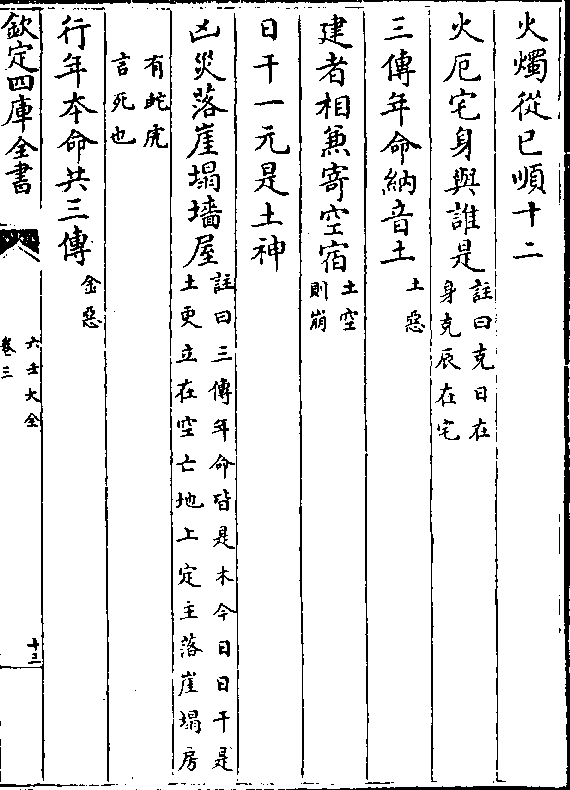 火燭從巳順十二
火厄宅身與誰是註曰克日在
身克辰在宅
三傳年命納音土土惡
建者相兼寄空宿土空
則崩
日干一元是土神
凶災落崖塌墻屋註曰三傳年命皆是木今日日干是
土更立在空亡地上定主落崖塌房
有蛇虎
言死也
行年本命共三傳金惡
欽定四庫全書
六壬大全
卷三
十三